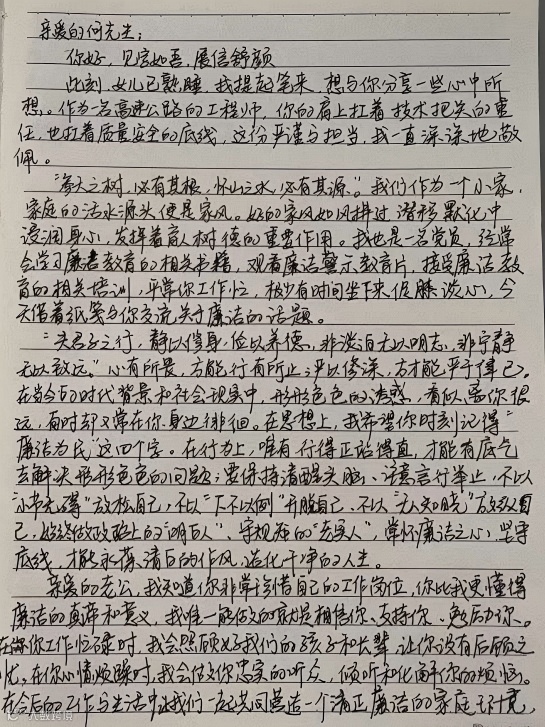 亲爱的何先生:
你好,见信如吾,展信舒颜
此刻,女儿已熟睡,我提起笔来,想与你分享一些心中所
想。作为一名高速公路的工程师,你的肩上扛着技术把关的重
任,也扛着质量安全的底线,这份严谨与担当,我一直深深地敬
佩。
"参天之树,必有其根,怀山之水,必有其源"。我们作为一个小家,
家庭的活水源头便是家风。好的家风如风拂过,潜移默化中
浸润身心,发挥着育人树德的重要作用。我也是一名党员,经常
会学习廉洁教育的相关书籍,观看廉洁警示教育片,接受廉洁教
育的相关培训,平常你工作忙,极少有时间坐下来促膝谈心,今
天借着纸笔与你交流关于廉洁的话题。
"夫君子之行,静以修身,俭以养德,非淡泊无以明志,非宁静
无以致远。"心有所畏,方能行有所止;严以修深,方才能严于律己。
在当今的时代背景和社会现实中,形形色色的诱惑,看似离你很
远,有时却又常在你身边徘徊。在思想上,我希望你时刻记得"
廉洁为民"这四个字。在行为上,唯有行得正站得直,才能有底气
去解决形形色色的问题;要保持清醒头脑、注意言行举止,不以
"小节无碍"放松自己,不以"下不以例"开脱自己,不以"无人知晓"放纵自
己,始终做政治上的"明白人"、守规矩的"老实人",常怀廉洁之心,坚守
底线,才能永葆清白的作风,造化干净的人生。
亲爱的老公,我知道你非常珍惜自己的工作岗位,你比我更懂得
廉洁的真谛和意义,我唯一能做的就是相信你、支持你、勉励你。
在你工作忙碌时,我会照顾好我们的孩子和长辈,让你没有后顾之
忧,在你心情烦躁时,我会做你忠实的听众,倾听和化解你的烦恼。
在今后的工作与生活中让我们一起共同营造一个清正廉洁的家庭环境,